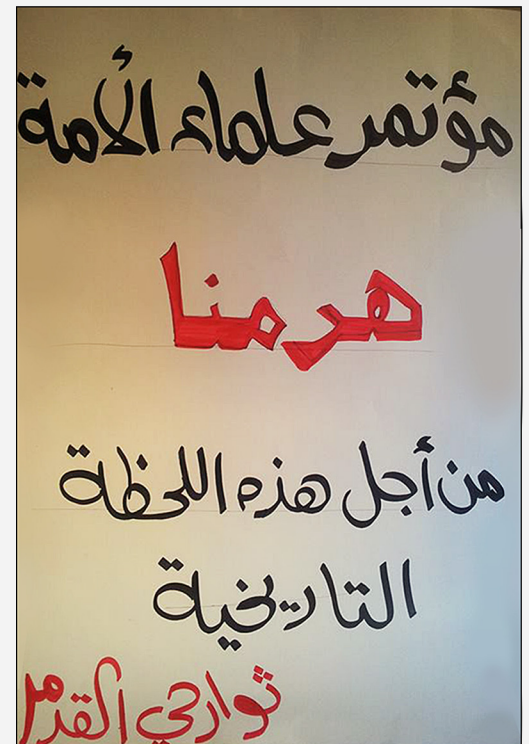 مؤتمر علماء الأمة
هرمنا
من أجل هذه اللحظة
التاريخية
ثوار حي القدم